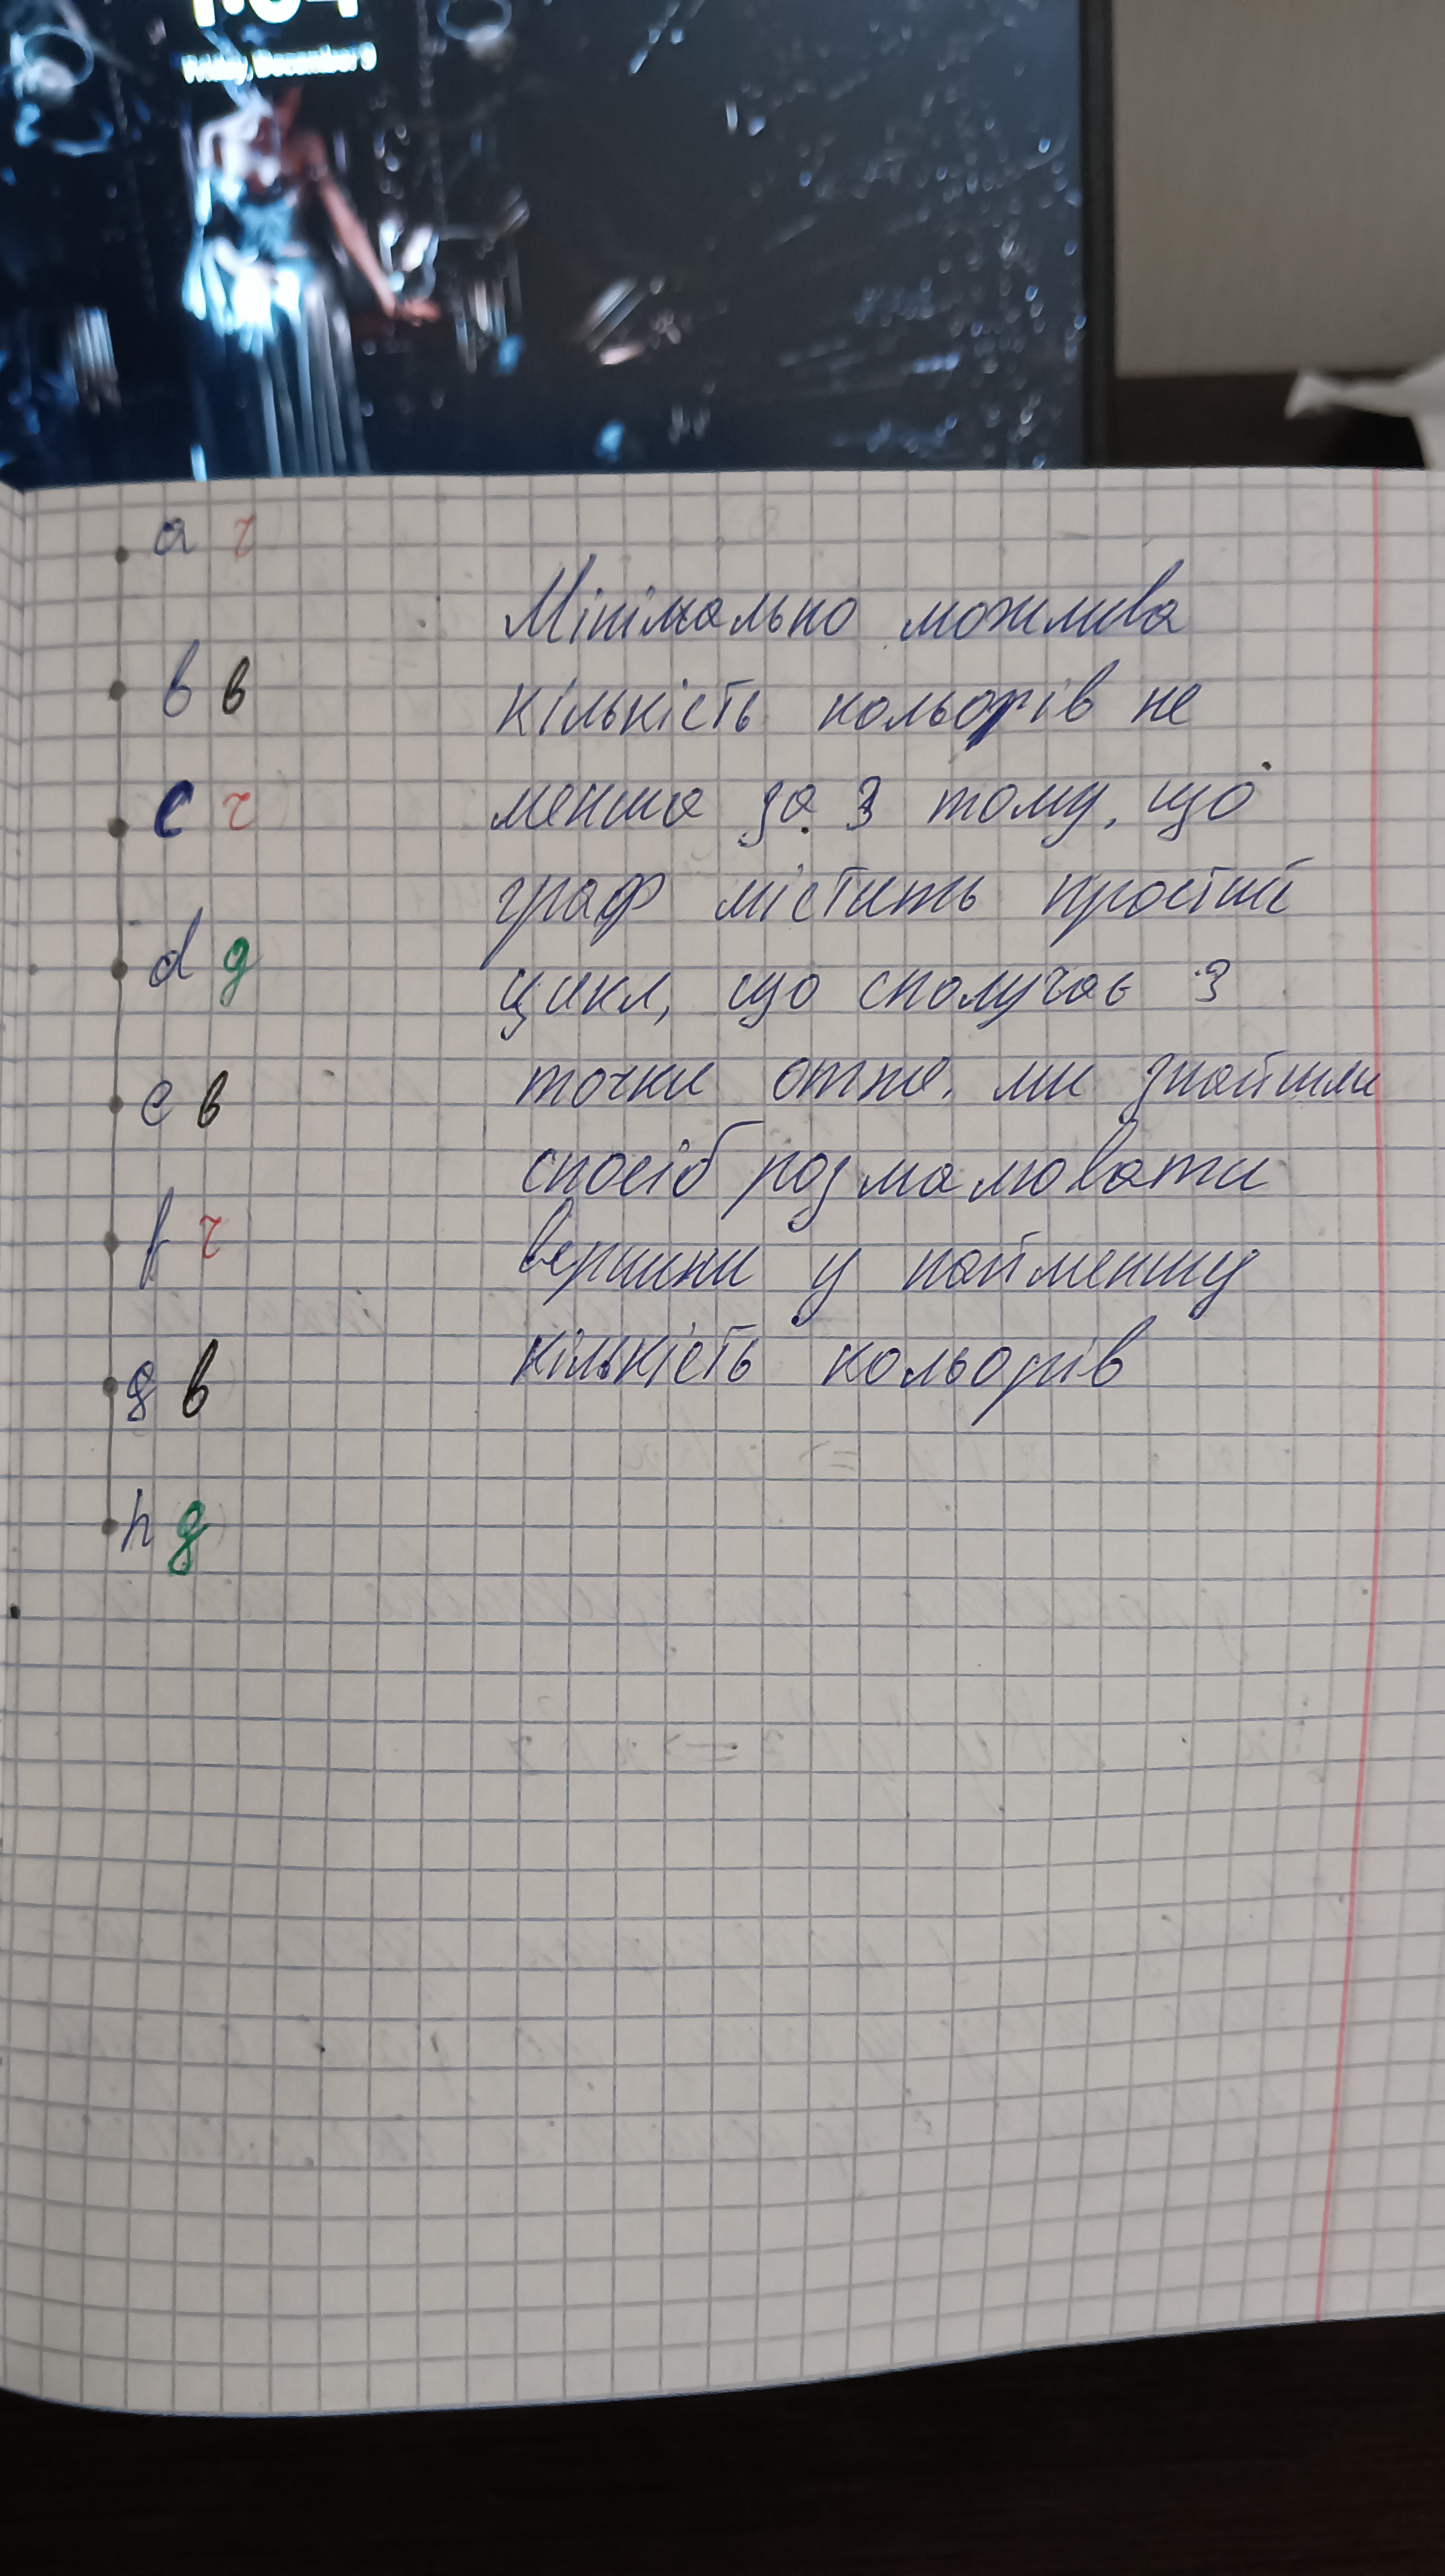 Friday, December 9
a r
b в
c r
d g
e в
f r
g в
h g
Мінімально можлива
кількість кольорів не
менша за 3 тому, що
граф містить простий
цикл, що сполучає 3
точки отже, ми знайшли
спосіб розмалювати
вершини у найменшу
кількість кольорів